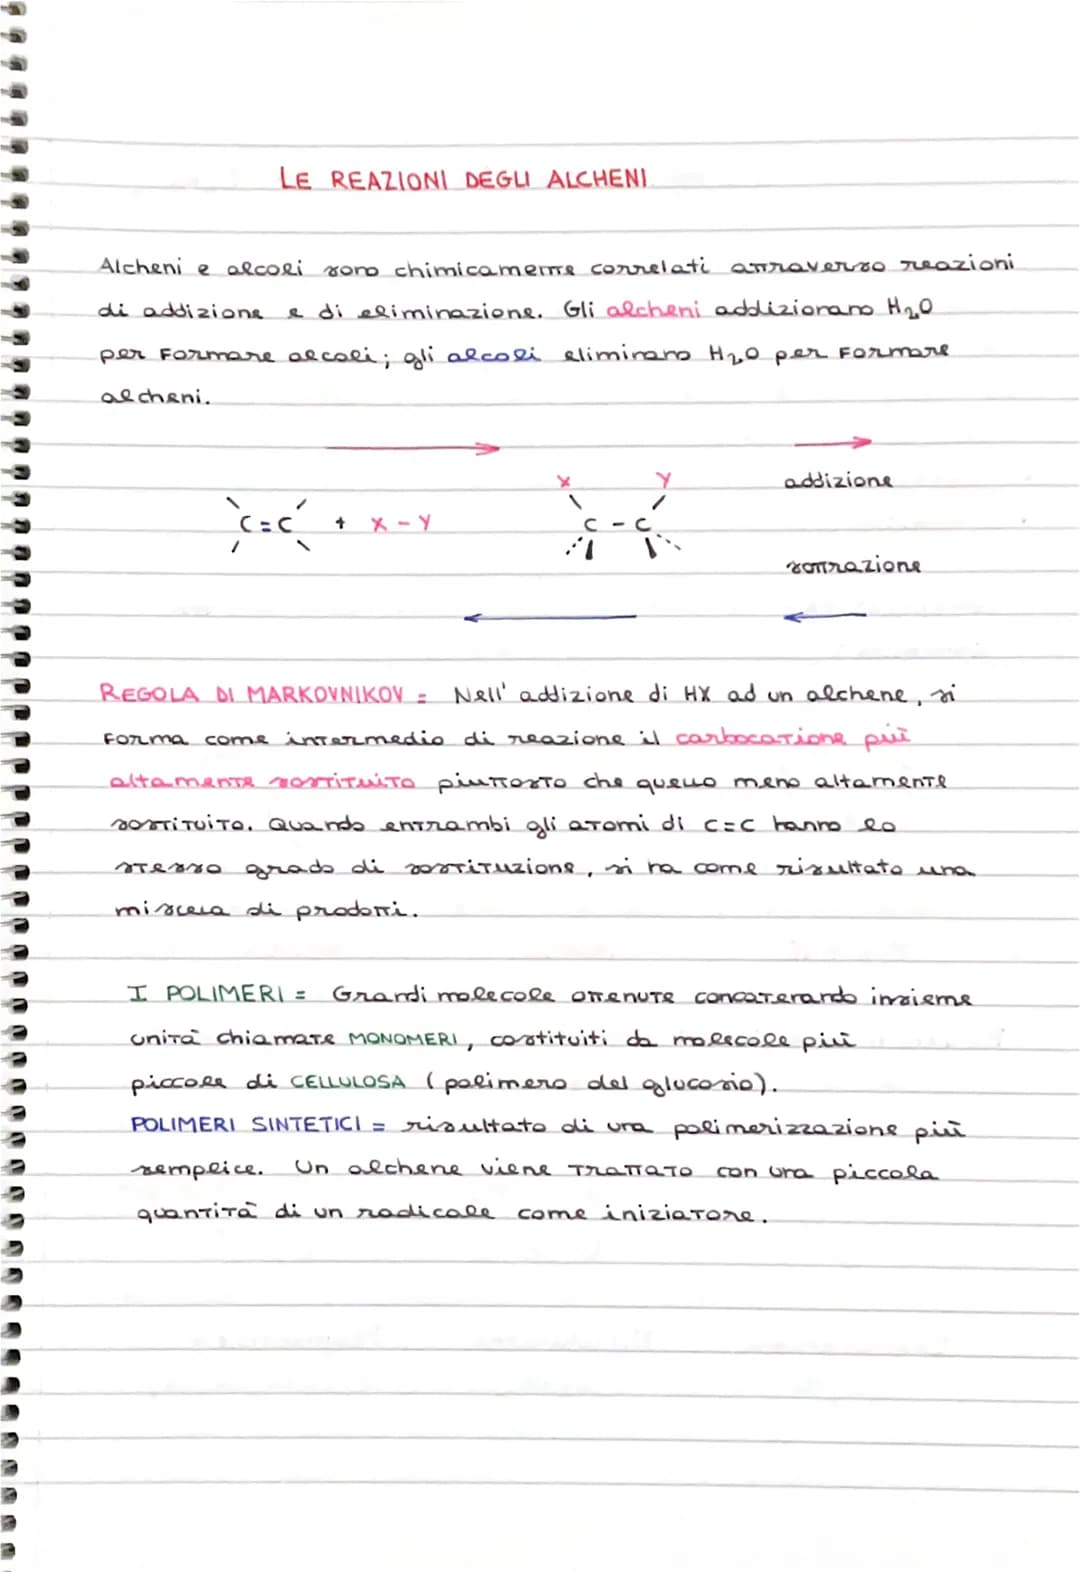 LE REAZIONI DEGLI ALCHENI
Alcheni e alcoli sono chimicamente correlati attraverso reazioni
di addizione e di eliminazione. Gli alcheni addizionano H₂O
per Formare alcoli; gli alcoli eliminano H₂O per Formare
alcheni.
addizione
X Y
C=C + X-Y C-C
sottrazione
REGOLA DI MARKOVNIKOV = Nell'addizione di HX ad un alchene, si
Forma come intermedio di reazione il carbocatione più
altamente sostituito piuttosto che quello meno altamente
sostituito. Quando entrambi gli atomi di C=C hanno lo
stesso grado di sostituzione, si ha come risultato una
miscela di prodotti.
I POLIMERI = Grandi molecole ottenute concatenando insieme
unità chiamate MONOMERI, costituiti da molecole più
piccole di CELLULOSA (polimero del glucosio).
POLIMERI SINTETICI = risultato di una polimerizzazione più
semplice. Un alchene viene trattato con una piccola
quantità di un radicale come iniziatore.